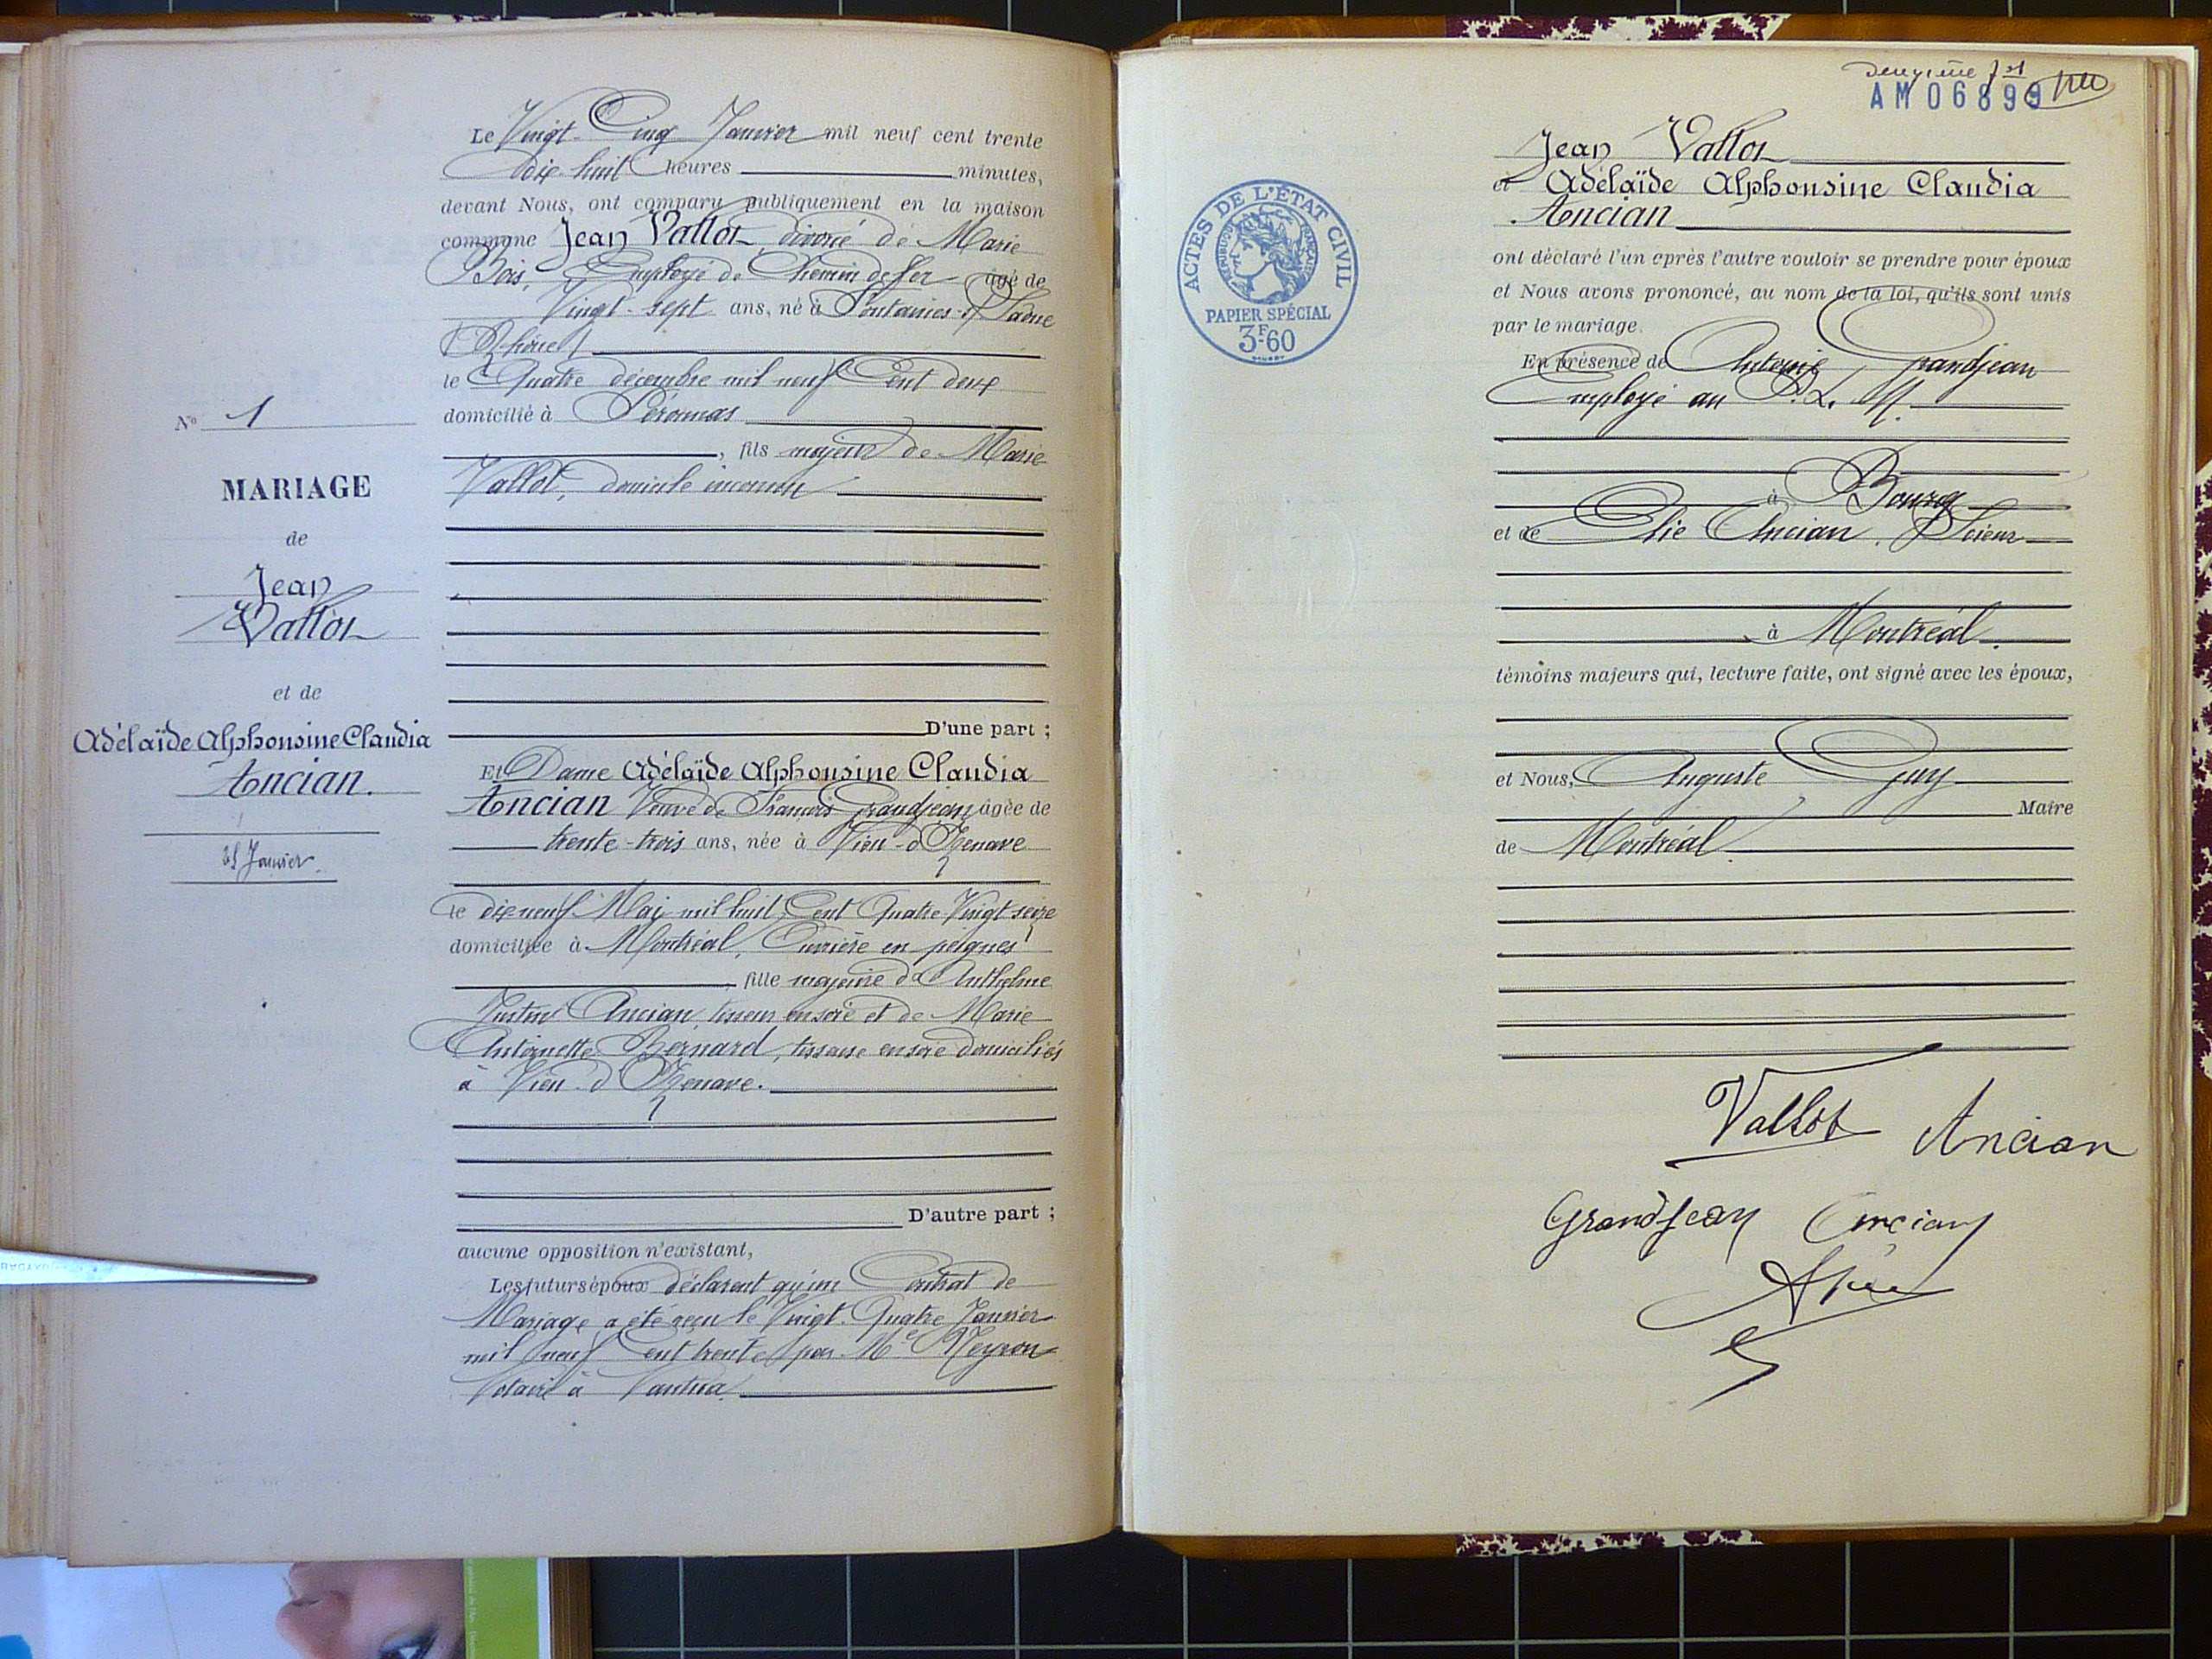 N° 1
MARIAGE
de
Jean
Vallot
et de
Adélaïde Alphonsine Claudia
Ancian.
25 Janvier.
Le Vingt-Cinq Janvier mil neuf cent trente
dix-huit heures minutes,
devant Nous, ont comparu publiquement en la maison
commune Jean Vallot, divorcé de Marie
Bois, Employé de Chemin de fer âgé de
Vingt-sept ans, né à Fontaines-s/Saône
(Rhône)
le Quatre décembre mil neuf Cent deux
domicilié à Péronnas
, fils majeur de Marie
Vallot, domicile inconnu
D'une part ;
Et Dame Adélaïde Alphonsine Claudia
Ancian Veuve de Francis Grandjean âgée de
trente-trois ans, née à Vieu-d'Izenave
le dix neuf Mai mil huit Cent Quatre Vingt seize
domiciliée à Montréal, Ouvrière en peignes
, fille majeure d'Anthelme
Justin Ancian, tisseur en soie et de Marie
Antoinette Bernard, tisseuse en soie domiciliés
à Vieu-d'Izenave.
D'autre part ;
aucune opposition n'existant,
Les futurs époux déclarent qu'un Contrat de
Mariage a été reçu le Vingt-Quatre Janvier
mil neuf Cent trente par Me Neyron
Notaire à Nantua.
deuxième
AM 06899
ACTES DE L'ÉTAT CIVIL
RÉPUBLIQUE FRANÇAISE
PAPIER SPÉCIAL
3F60
Jean Vallot
et Adélaïde Alphonsine Claudia
Ancian
ont déclaré l'un après l'autre vouloir se prendre pour époux
et Nous avons prononcé, au nom de la loi, qu'ils sont unis
par le mariage.
En présence de Antoine Grandjean
Employé au P. L. M.
à Bourg
et de Elie Ancian, Scieur
à Montréal.
témoins majeurs qui, lecture faite, ont signé avec les époux,
et Nous, Auguste Guy
Maire
de Montréal.
Vallot Ancian
Grandjean Ancian